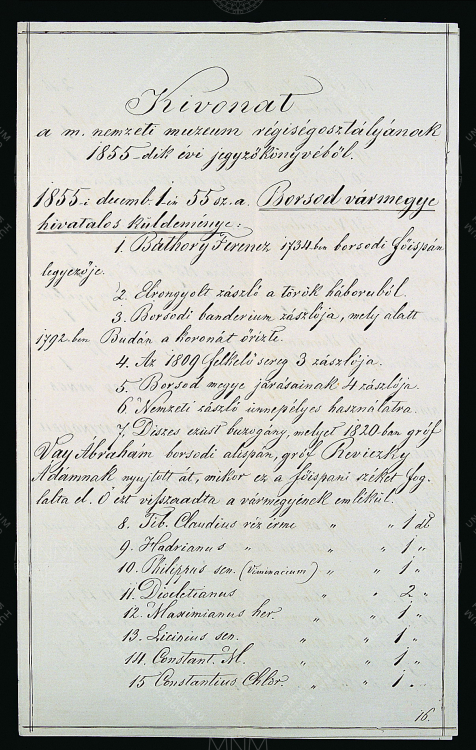 Kivonat
a m. nemzeti muzeum régiségosztályának
1855-dik évi jegyzőkönyvéből.
1855-i decemb. 1én 55 sz. a. Borsod vármegye
hivatalos küldeménye:
1. Báthory Ferencz 1734-ben borsodi főispán
legyezője.
2. Elrongyolt zászló a török háboruból.
3. Borsodi banderium zászlója, mely alatt
1792-ben Budán a koronát őrizte.
4. Az 1809 felkelő sereg 3 zászlója.
5. Borsod megye járásainak 4 zászlója
6. Nemzeti zászló innepélyes használatra.
7. Diszes ezüst buzogány, melyet 1820-ban gróf
Vay Ábrahám borsodi alispán, gróf Reviczky
Ádámnak nyujtott át, mikor ez a főispáni széket fog-
lalta el. Ő ezt visszaadta a vármegyének emlékül.
8. Tib. Claudius réz érme " " 1 db
9. Hadrianus " " " 1 "
10. Philippus sen. (Viminacium) " " 1 "
11. Diocletianus " " 2 "
12. Maximianus her. " " 1 "
13. Licinius sen. " " 1 "
14. Constant. M. " " 1 "
15 Constantius Chlor. " " 1 "
16.
MNM